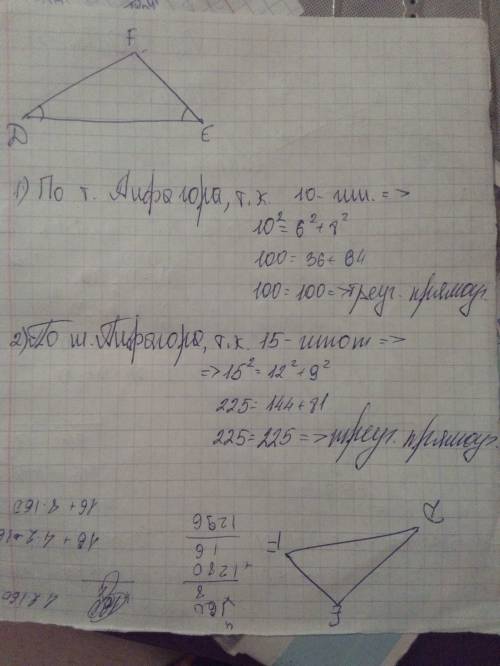 F
D E
1) По т. Пифагора, т.к. 10 - гип. =>
10² = 6² + 8²
100 = 36 + 64
100 = 100 => треуг. прямоуг.
2) По т. Пифагора, т.к. 15 - гипот =>
=> 15² = 12² + 9²
225 = 144 + 81
225 = 225 => треуг. прямоуг.
16 + 2·160
1296
16
1280
8
160
F
E